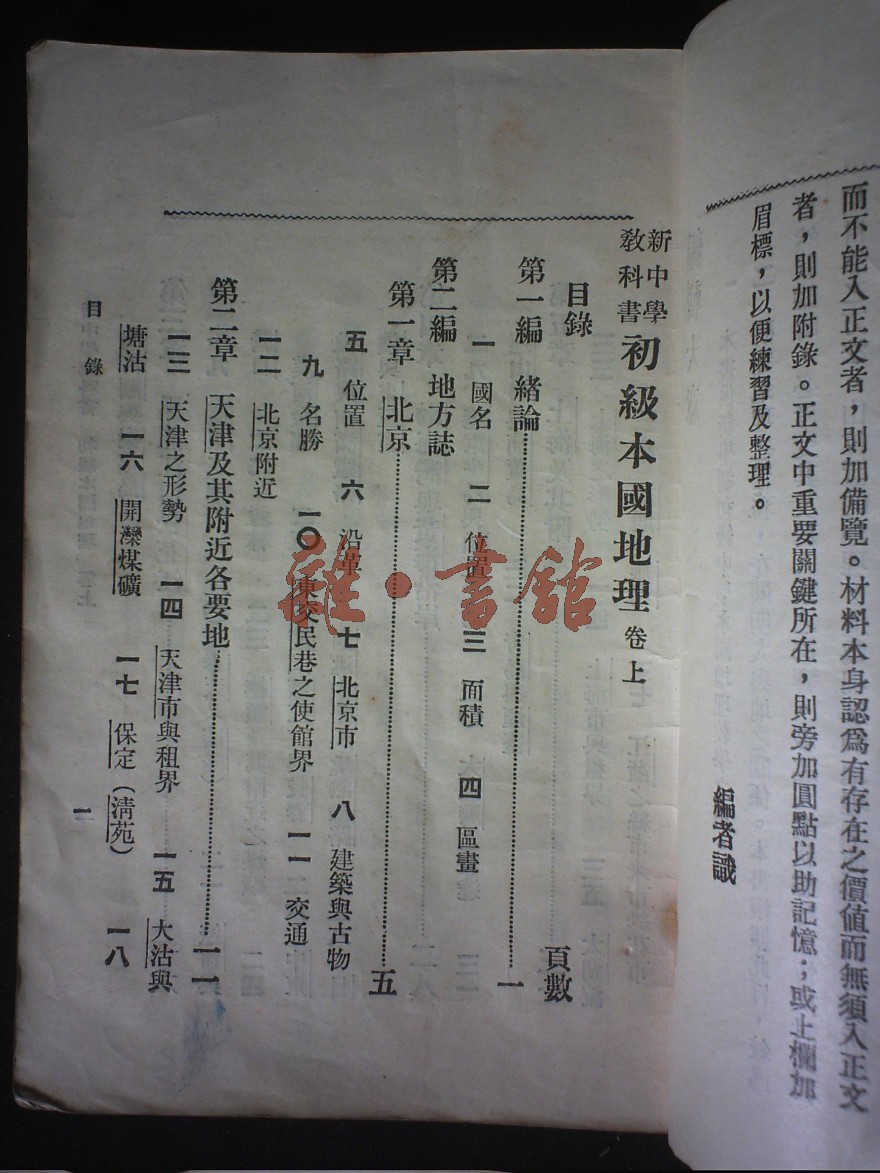 而不能入正文者，則加備覽。材料本身認爲有存在之價値而無須入正文
者，則加附錄。正文中重要關鍵所在，則旁加圓點以助記憶；或上欄加
眉標，以便練習及整理。
編者識
新中學教科書 初級本國地理 卷上
目錄 頁數
第一編 緒論 一
一 國名 二 位置 三 面積 四 區畫
第二編 地方誌
第一章 北京 五
五 位置 六 沿革 七 北京市 八 建築與古物
九 名勝 一〇 東交民巷之使館界 一一 交通
一二 北京附近
第二章 天津及其附近各要地 一一
一三 天津之形勢 一四 天津市與租界 一五 大沽與
塘沽 一六 開灤煤礦 一七 保定（淸苑） 一八
目錄 一
雜·書館